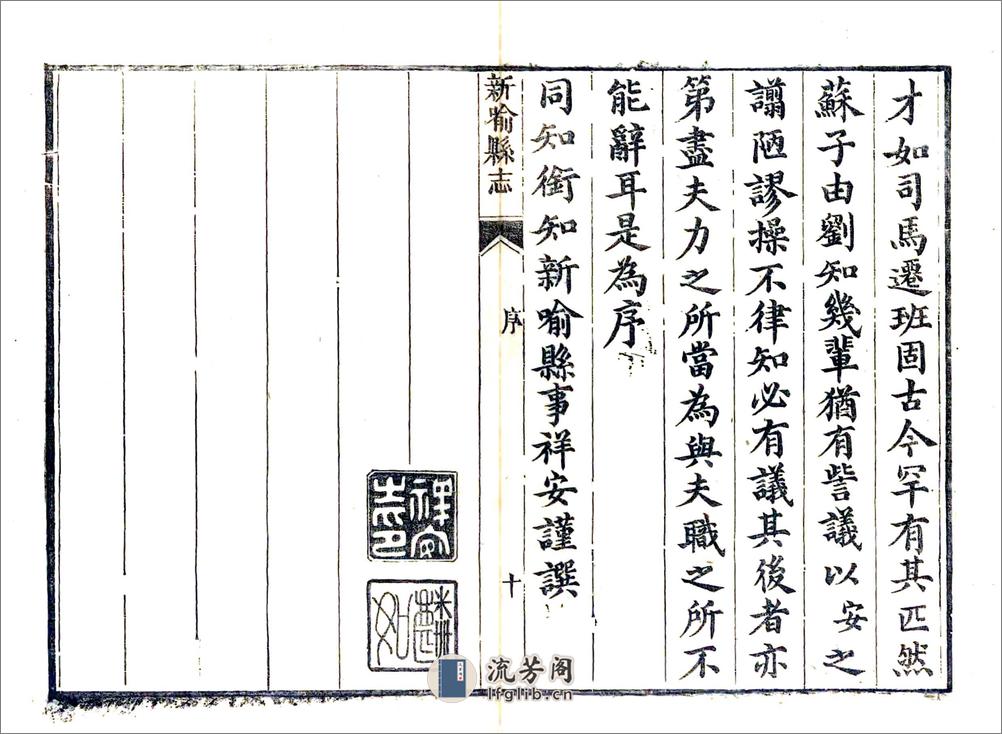 才如司馬遷班固古今罕有其匹然
蘇子由劉知幾輩猶有訾議以安之
譾陋謬操不律知必有議其後者亦
第盡夫力之所當為與夫職之所不
能辭耳是為序
同知銜知新喻縣事祥安謹譔
新喻縣志
序
十
祥安之印
流芳阁
lfglib.cn